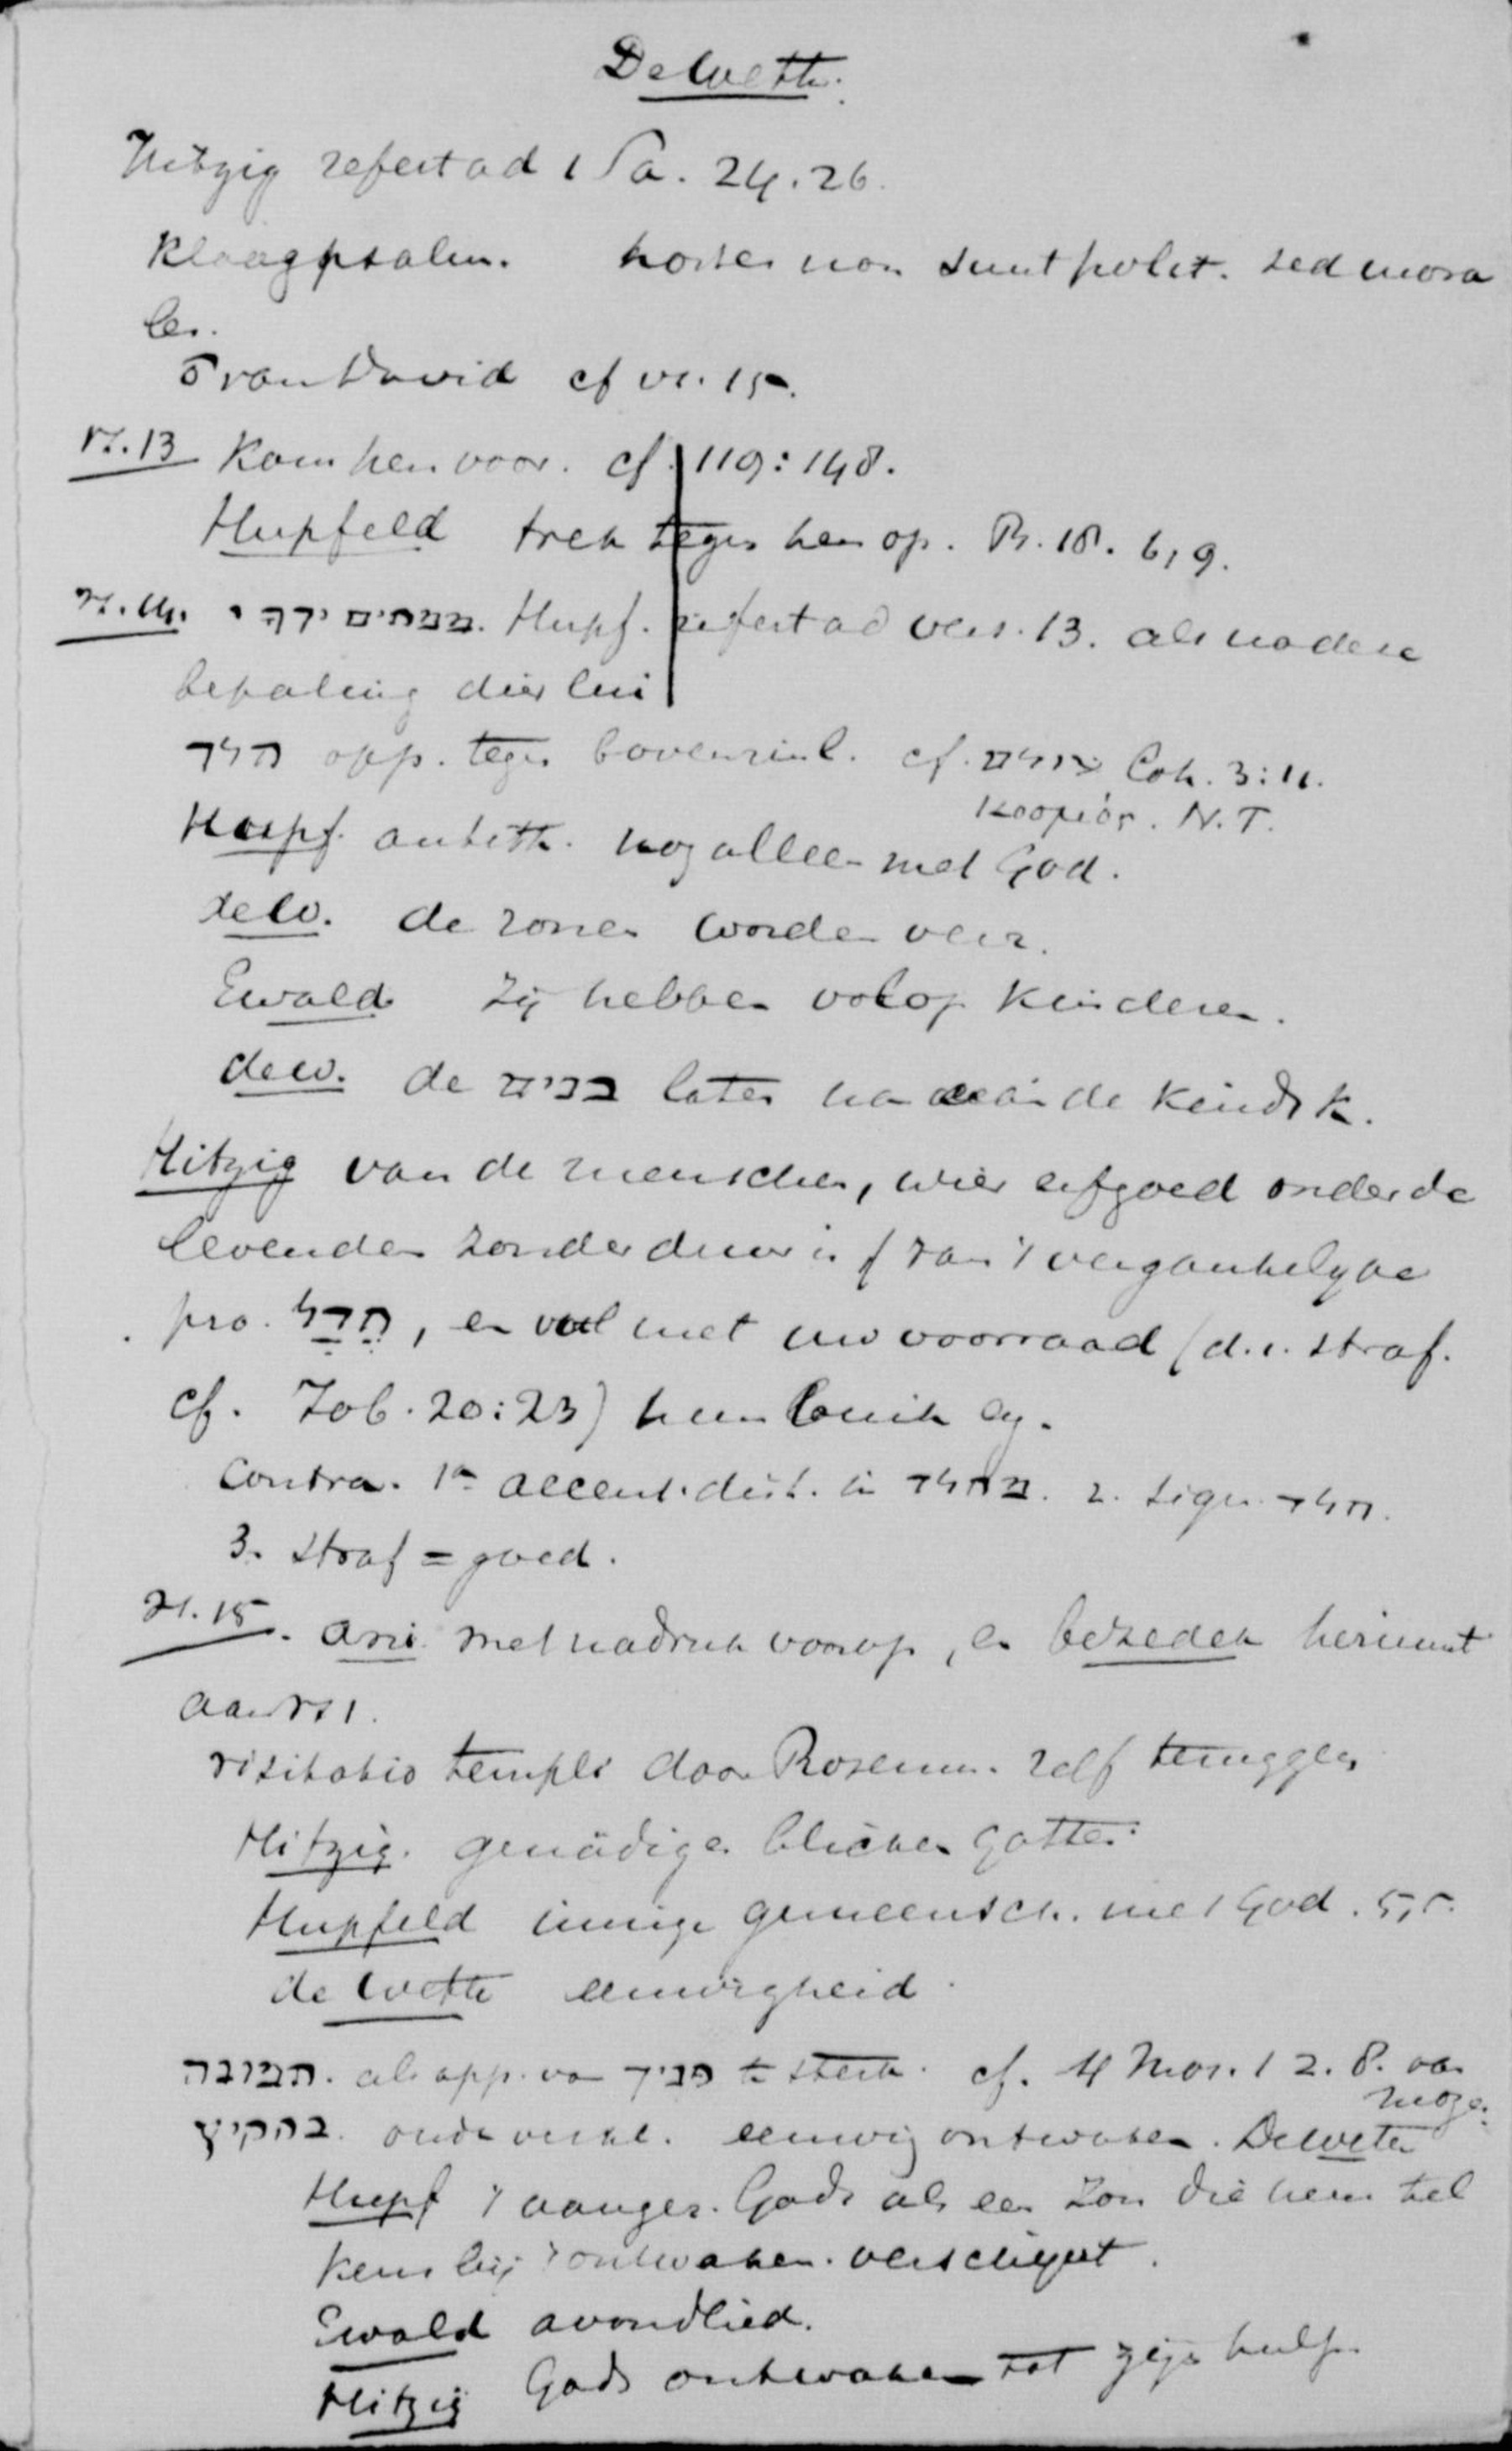 De Wette.
Hitzig refert ad 1 Sa. 24. 26.
Klaagpsalm. hostes non sunt polit. sed mora
les.
van David cf vs. 15.
vs. 13 Kom hen voor. cf. 119:148.
Hupfeld trek tegen hen op. Ps. 18. 6, 9.
vs. 14. ממתים ידך י. Hupf. refert ad vers. 13. als nadere
bepaling dier lui
חלד opp. tegen bovenzinl. cf. עולם Coh. 3:11.
κόσμος. N.T.
Hupf. antith. nog alleen met God.
deW. de zonen worden verz.
Ewald zij hebben volop kinderen.
deW. de בנים laten na aan de kindsk.
Hitzig van de menschen, wier erfgoed onder de
levenden zonder duur is / van 't vergankelyke
pro. חדל, en vul met uw voorraad (d.i. straf.
cf. Job. 20:23) hun buik
contra. 1o accent. dist. in מחלד. 2. sign. חלד.
3. straf = goed.
vs. 15. ani met nadruk voorop, en bezedek herinnert
aan vs 1.
visitatio templi door Rosenm. zelf teruggen
Hitzig. genädigen blicken Gottes.
Hupfeld innige gemeensch. met God. 5,5.
de Wette eeuwigheid.
תמונה. als opp. van פניך te sterk. cf. 4 Mos. 12. 8. van
Moze.
בהקיץ. oude verkl. eeuwig ontwaken. DeWette
Hupf 't aangez. Gods als een Zon die hem tel
kens bij 't ontwaken verschijnt.
Ewald avondlied.
Hitzig Gods ontwaken tot zijn hulp.